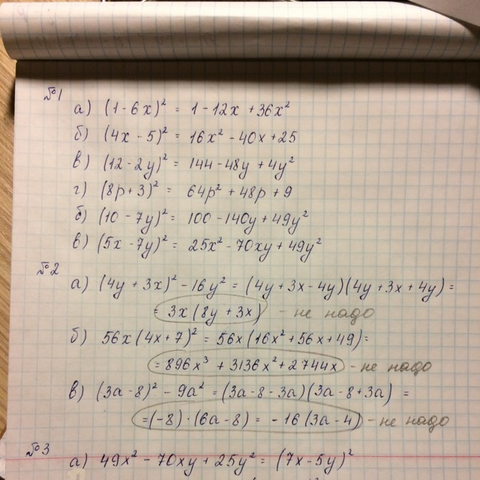 №1
а) (1-6x)² = 1-12x+36x²
б) (4x-5)² = 16x²-40x+25
в) (12-2y)² = 144-48y+4y²
г) (8p+3)² = 64p²+48p+9
б) (10-7y)² = 100-140y+49y²
в) (5x-7y)² = 25x²-70xy+49y²
№2
а) (4y+3x)²-16y² = (4y+3x-4y)(4y+3x+4y) =
= 3x(8y+3x) - не надо
б) 56x(4x+7)² = 56x(16x²+56x+49) =
= 896x³+3136x²+2744x - не надо
в) (3a-8)²-9a² = (3a-8-3a)(3a-8+3a) =
= (-8)·(6a-8) = -16(3a-4) - не надо
№3
а) 49x²-70xy+25y² = (7x-5y)²